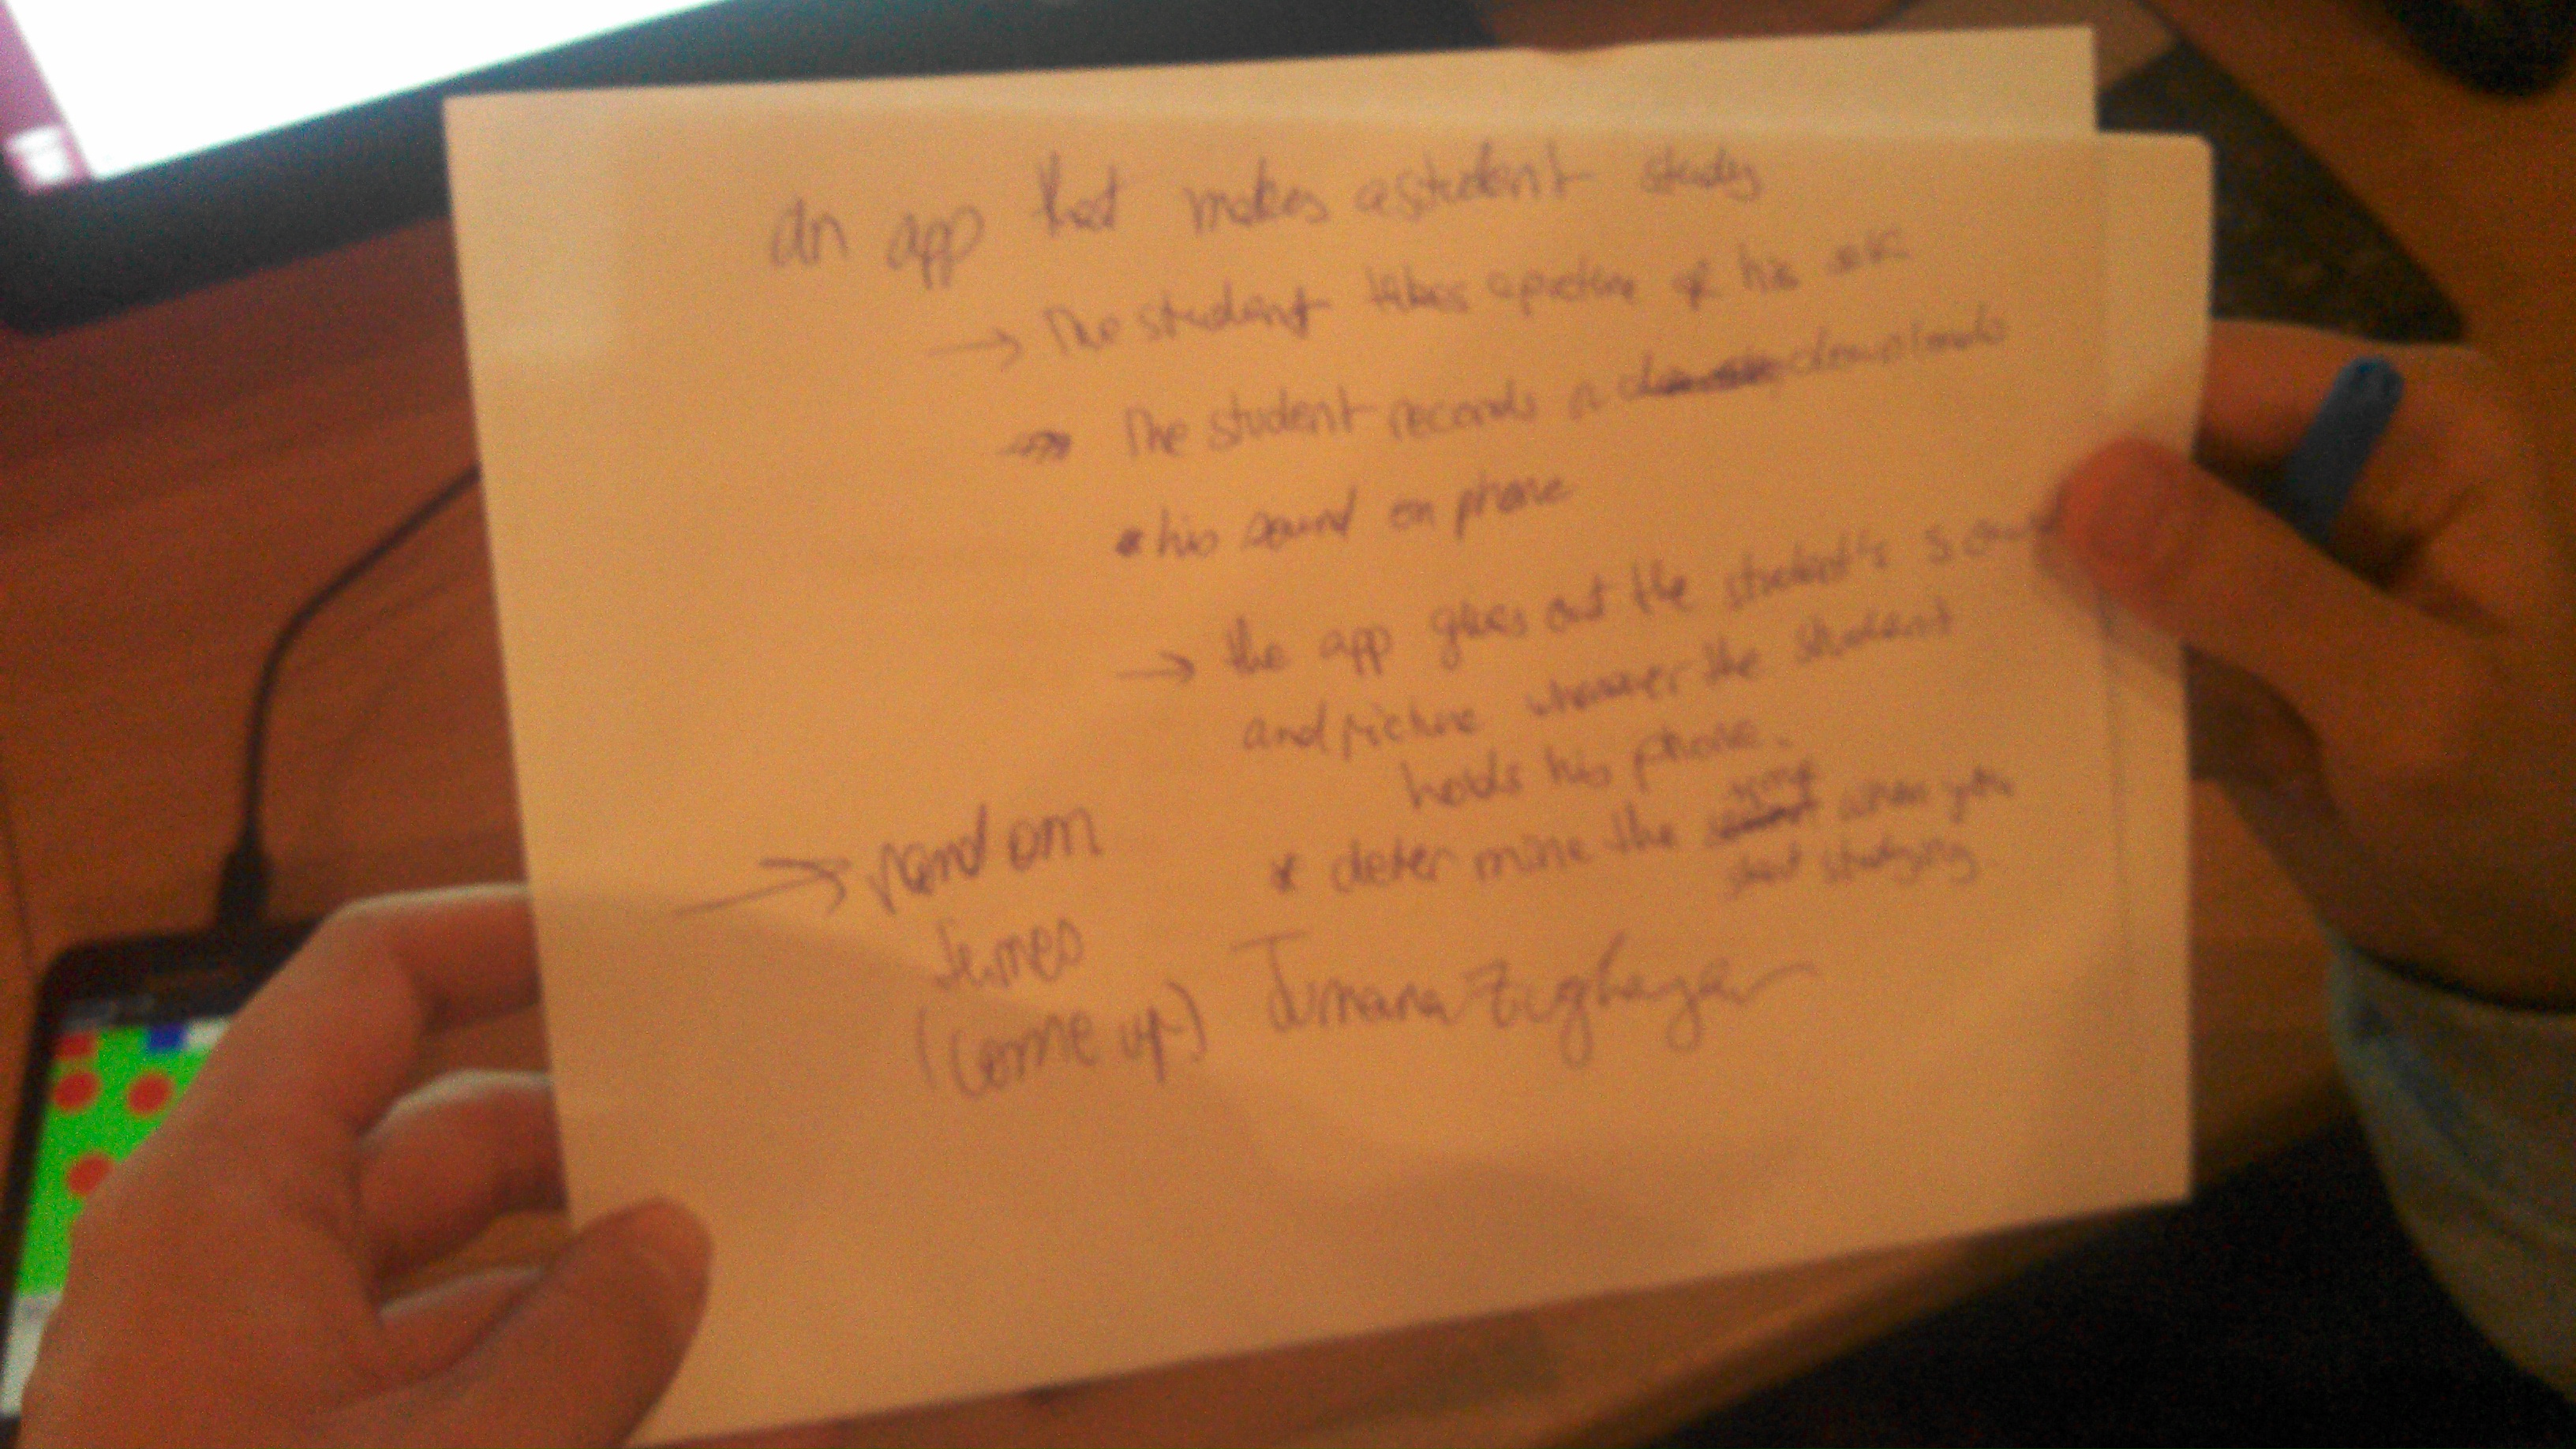 an app that makes a student study
→ The student takes a picture of his
→ The student records or downloads
* his sound on phone
→ the app gives out the student's sound
and picture whenever the student
holds his phone.
* determine the when you
start studying
→ random
times
(come up)
Jumana Zughayar